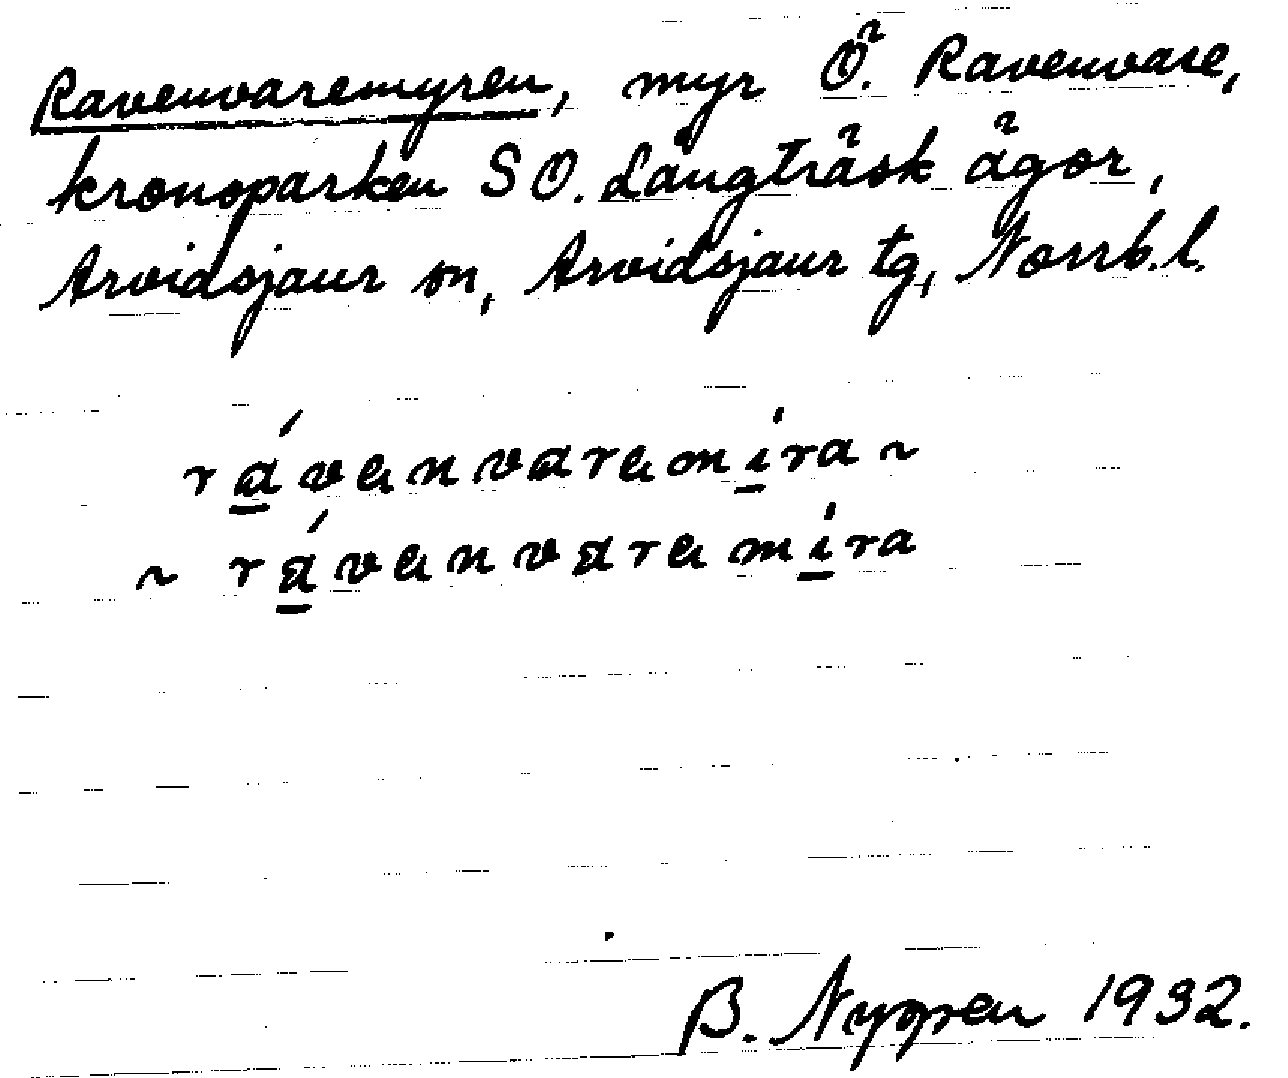 Ravenvaremyren, myr Ö. Ravenvare,
kronoparken SO. Långträsk ägor,
Arvidsjaur sn, Arvidsjaur tg, Norrb.l.
rávenvaremira ~
~ rávenvaremira
B. Nygren 1932.